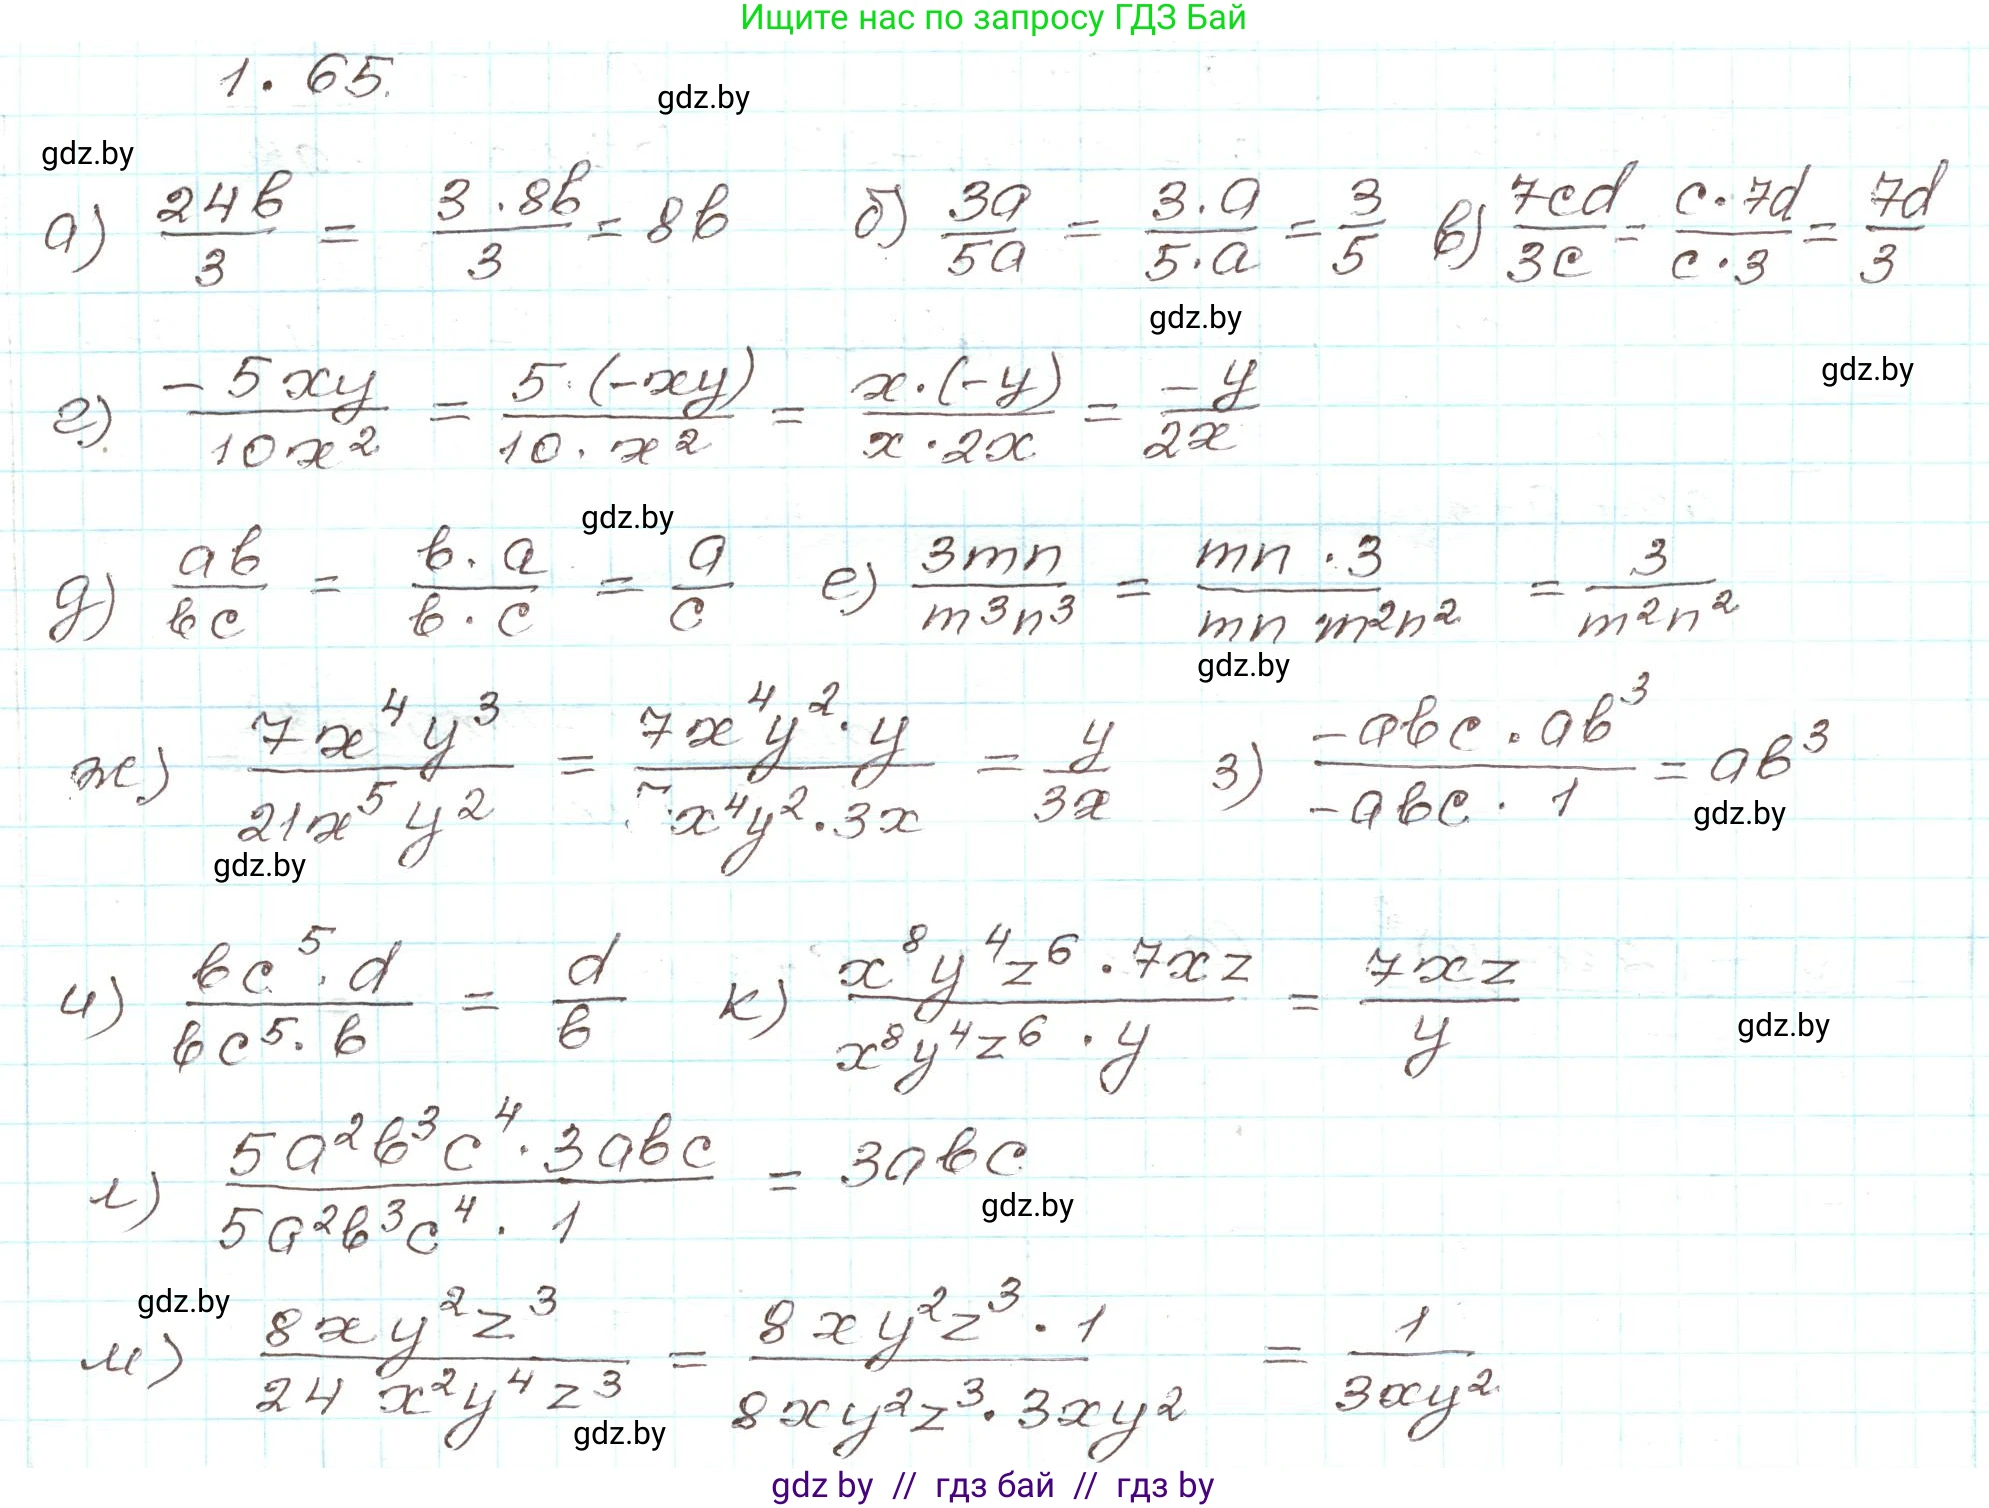 Ищите нас по запросу ГДЗ Бай
1.65.
gdz.by
gdz.by
а) 24b/3 = 3·8b/3 = 8b б) 3a/5a = 3·a/5·a = 3/5 в) 7cd/3c = c·7d/c·3 = 7d/3
gdz.by
gdz.by
г) -5xy/10x² = 5·(-xy)/10·x² = x·(-y)/x·2x = -y/2x
gdz.by
д) ab/bc = b·a/b·c = a/c е) 3mn/m³n³ = mn·3/mn·m²n² = 3/m²n²
gdz.by
ж) 7x⁴y³/21x⁵y² = 7x⁴y²·y/7x⁴y²·3x = y/3x з) -abc·ab³/-abc·1 = ab³
gdz.by
gdz.by
и) bc⁵·d/bc⁵·b = d/b к) x⁸y⁴z⁶·7xz/x⁸y⁴z⁶·y = 7xz/y
gdz.by
л) 5a²b³c⁴·3abc/5a²b³c⁴·1 = 3abc
gdz.by
gdz.by
м) 8xy²z³/24x²y⁴z³ = 8xy²z³·1/8xy²z³·3xy² = 1/3xy²
gdz.by
gdz by // гдз бай // гдз by